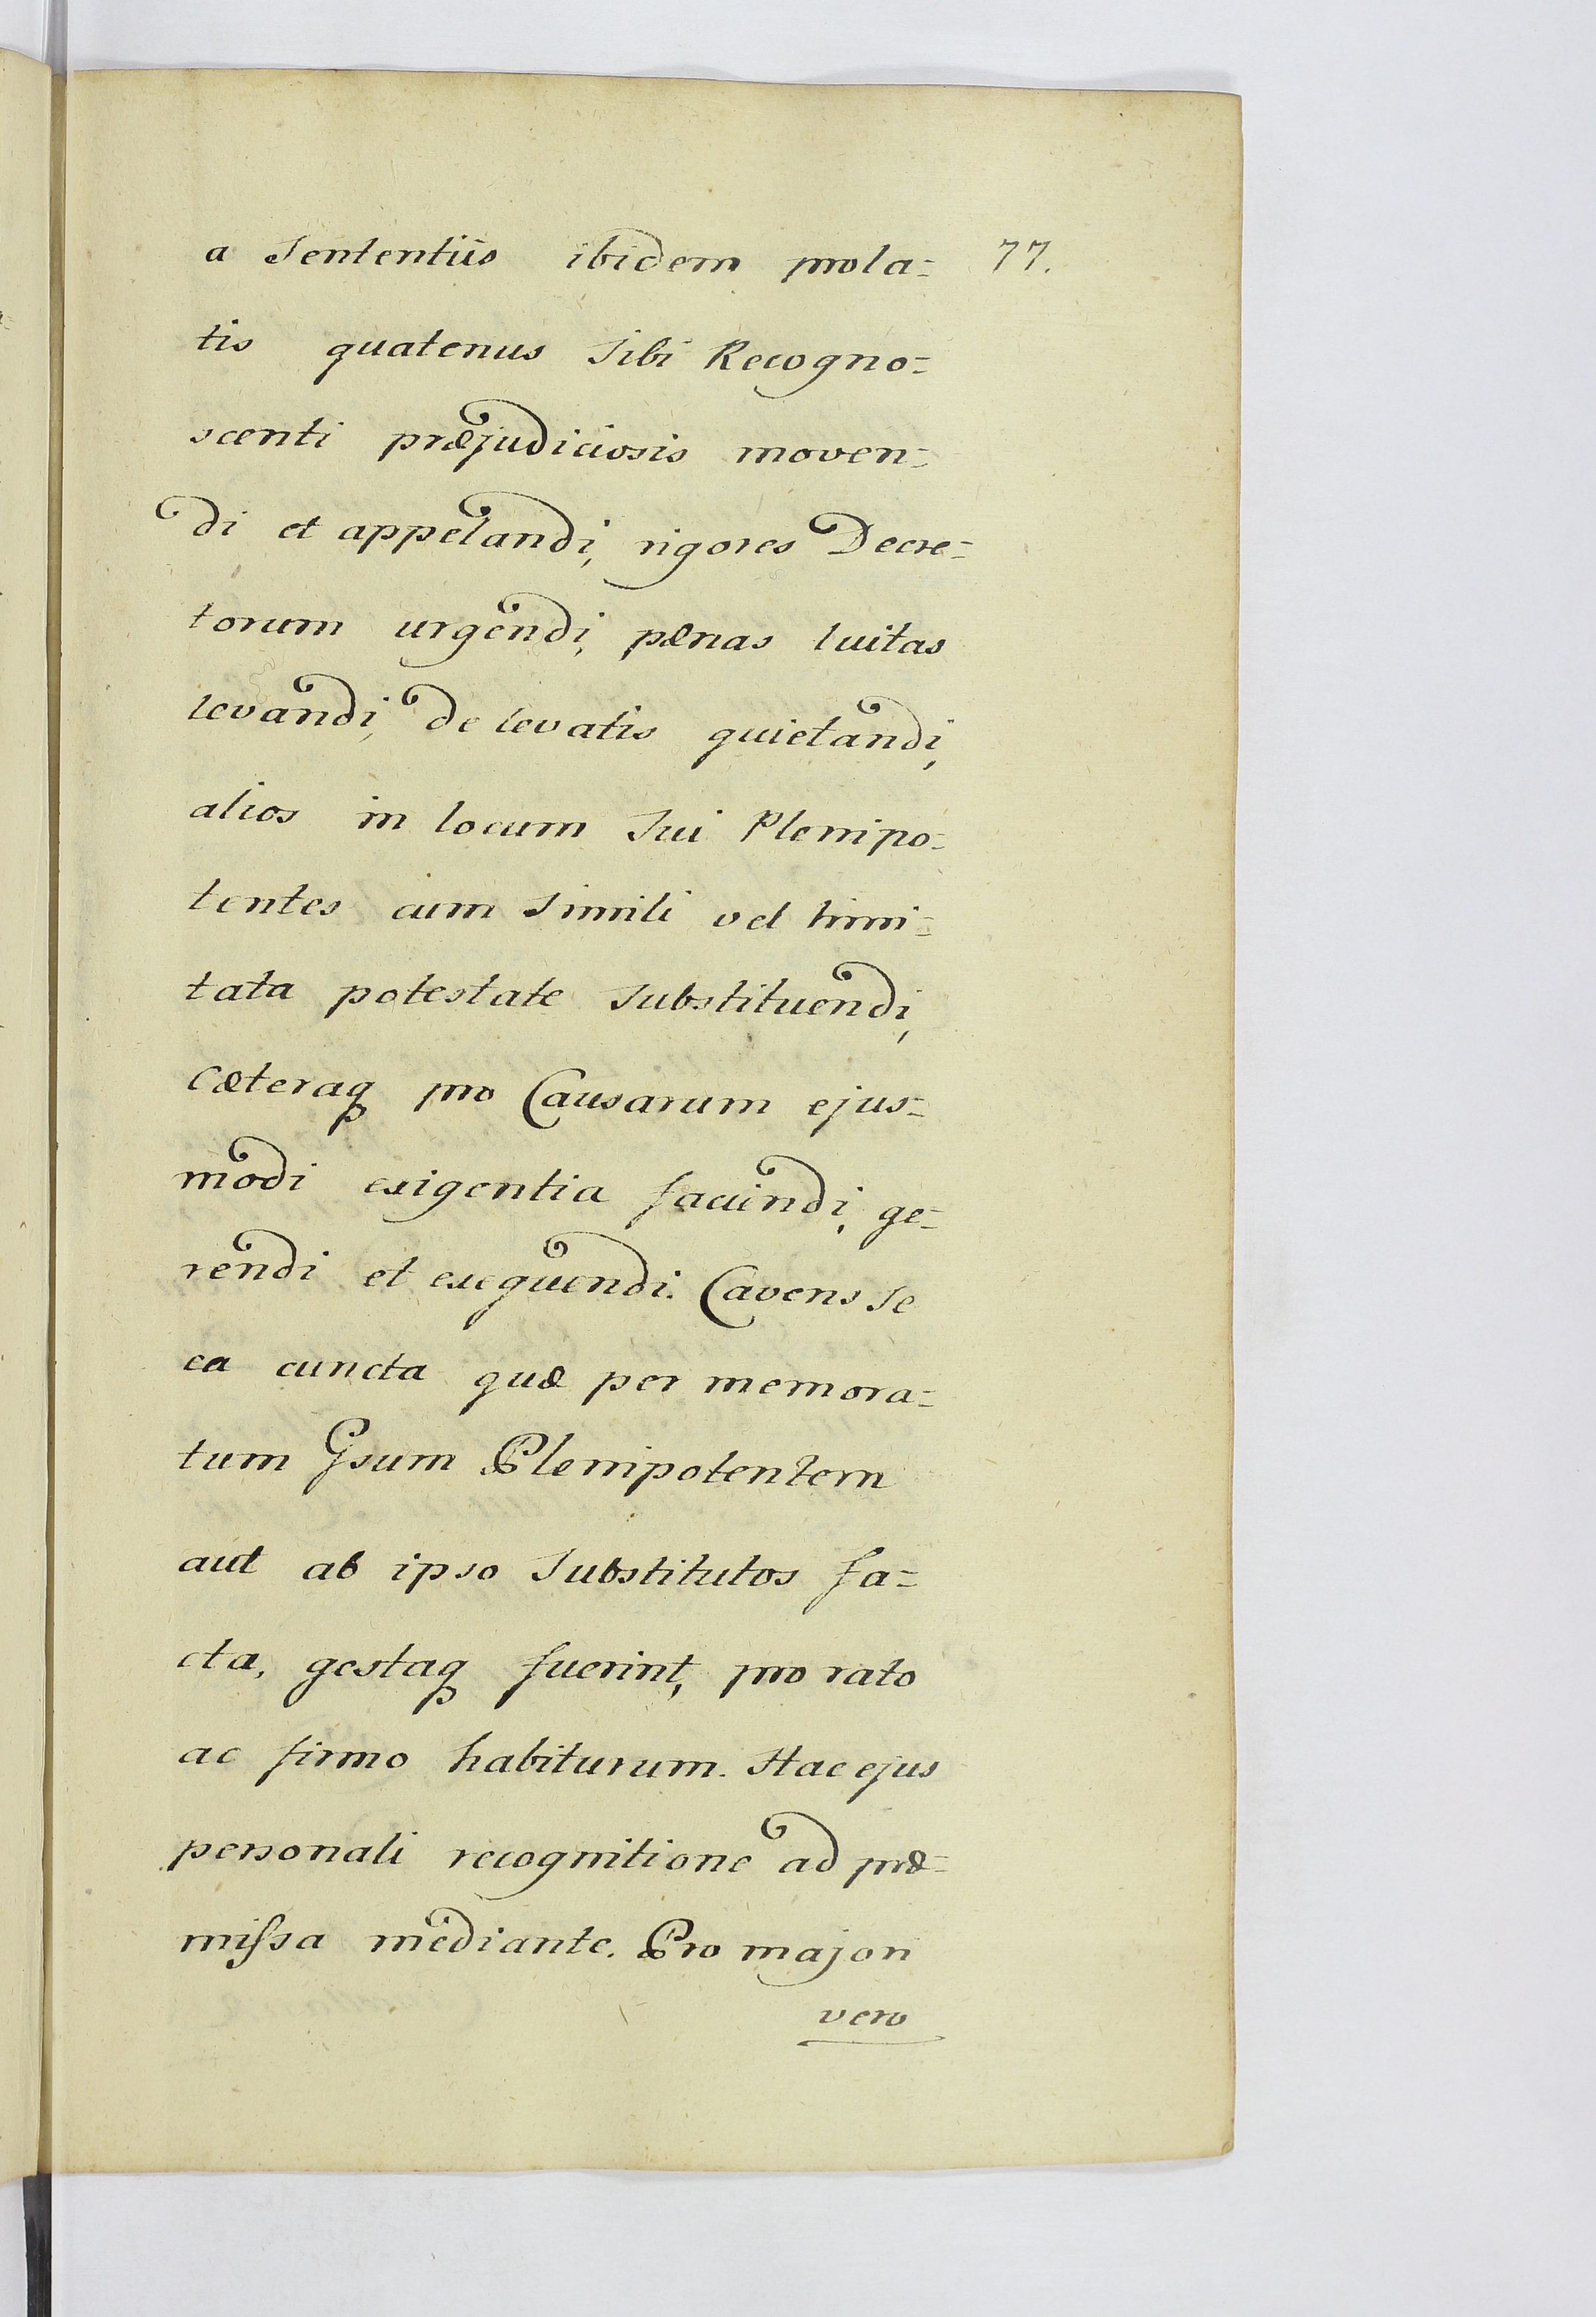 a Sententiis ibidem prola= 77.
tis quatenus Sibi Recogno=
scenti præjudiciosis moven=
di et appelandi, rigores Decre=
torum urgendi, pænas luitas
levandi, de levatis quietandi,
alios in locum Sui Plenipo=
tentes cum Simili vel limi=
tata potestate Substituendi,
Cæteraq pro Causarum ejus=
modi exigentia faciendi, ge=
rendi et exequendi. Cavens Se
ea cuncta quæ per memora=
tum Gsum Plenipotentem
aut ab ipso Substitutos fa=
cta, gestaq fuerint, pro rato
ac firmo habiturum. Hac ejus
personali recognitione ad præ=
missa mediante. Pro majori
vero